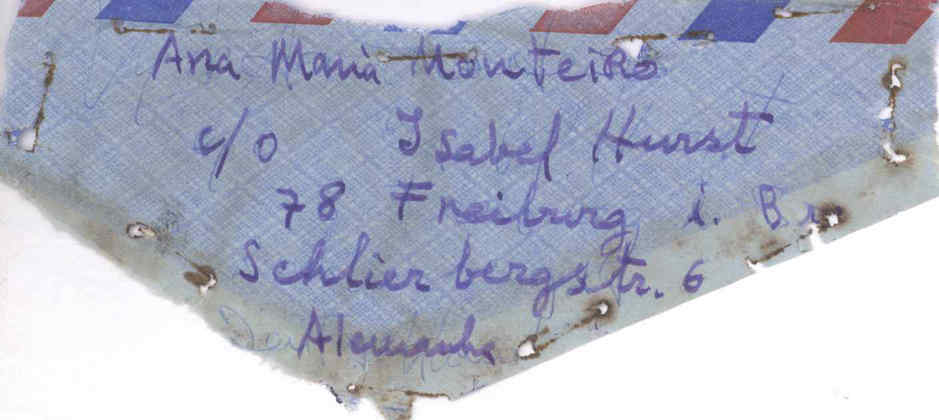 Ana Maria Monteiro
c/o Isabel Hurst
78 Freiburg i. Br
Schlierbergstr. 6
Alemanha